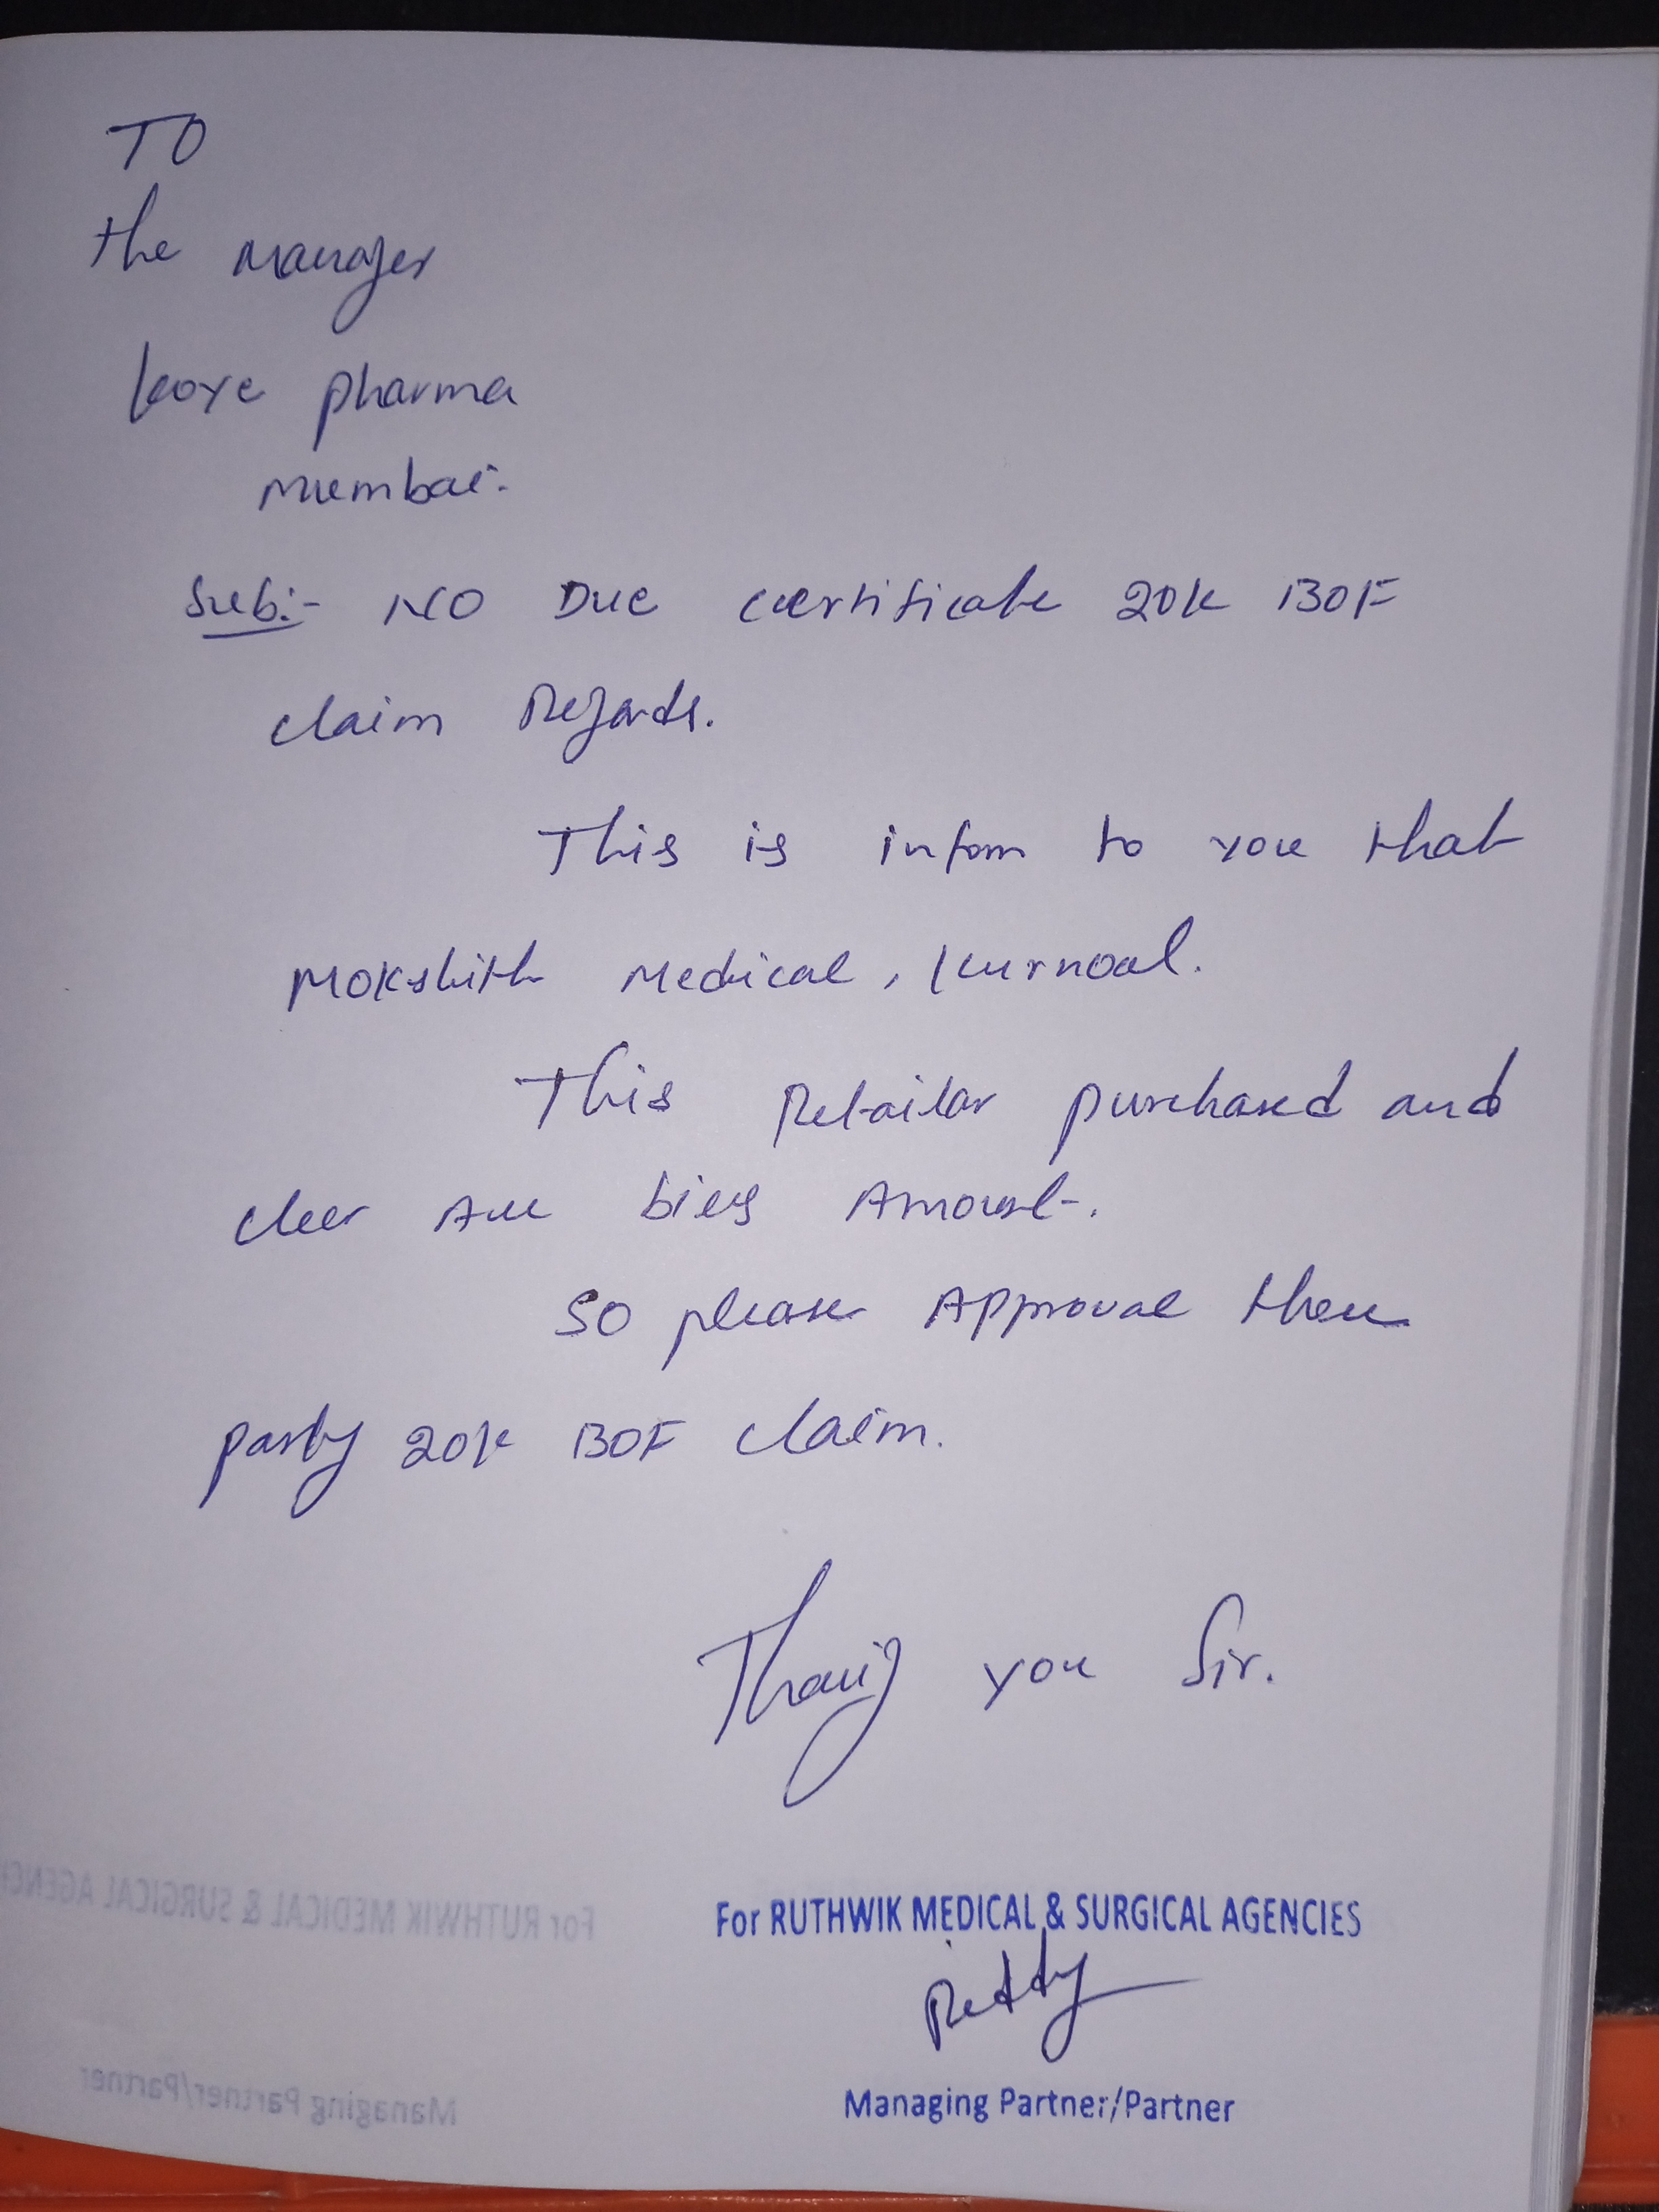 TO
the manager
koye pharma
mumbai.
Sub:- NO Due certificate 20K BOF
claim Regards.
This is infom to you that
Mokshith Medical, Kurnoal.
This Retailar purchased and
cleer All bills Amount.
So please Approval them
party 20K BOF claim.
Thank you Sir.
For RUTHWIK MEDICAL & SURGICAL AGENCIES
Reddy
Managing Partner/Partner
For RUTHWIK MEDICAL & SURGICAL AGENCI
Managing Partner/Partner